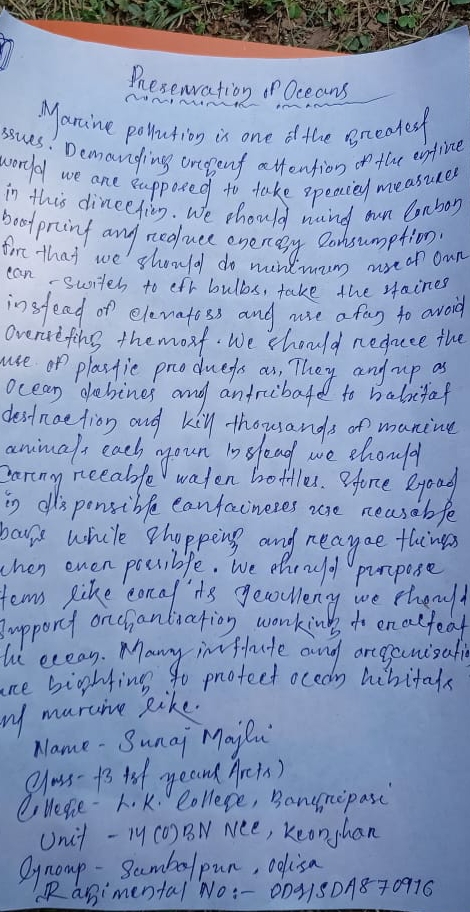 Preservation of Oceans
Marine pollution is one of the greatest
issues. Demanding urgent attention of the entire
world we are supposed to take special measures
in this direction. We should mind our Carbon
bootprint and reduce energy Consumption.
for that we should do minimum use of our
can - switch to cfl bulbs, take the staires
instead of elevatoss and use a fan to avoid
the most. We should reduce the
use of plastic products as, They and up as
Ocean debines and antribate to habitat
destraction and kill thousands of marine
animals each your Instead we should
Carny water bottles. Store
in disponsible containeres use reusable
bags while shopping and things
when even possible. We should purpose
tems like coral its Jewellery we should
support working to
the ocean. Many institute and
are bighting to protect ocean hibitals
and marine like.
Name - Suraj Majhi
Class - +3 1st yeard Arcts)
College - L.K. College, Bangripasi
Unit - 14 (O) BN NCC, Keonjhar
Group - Sambalpur, odisa
Ragimental No:- OD21SDA870916